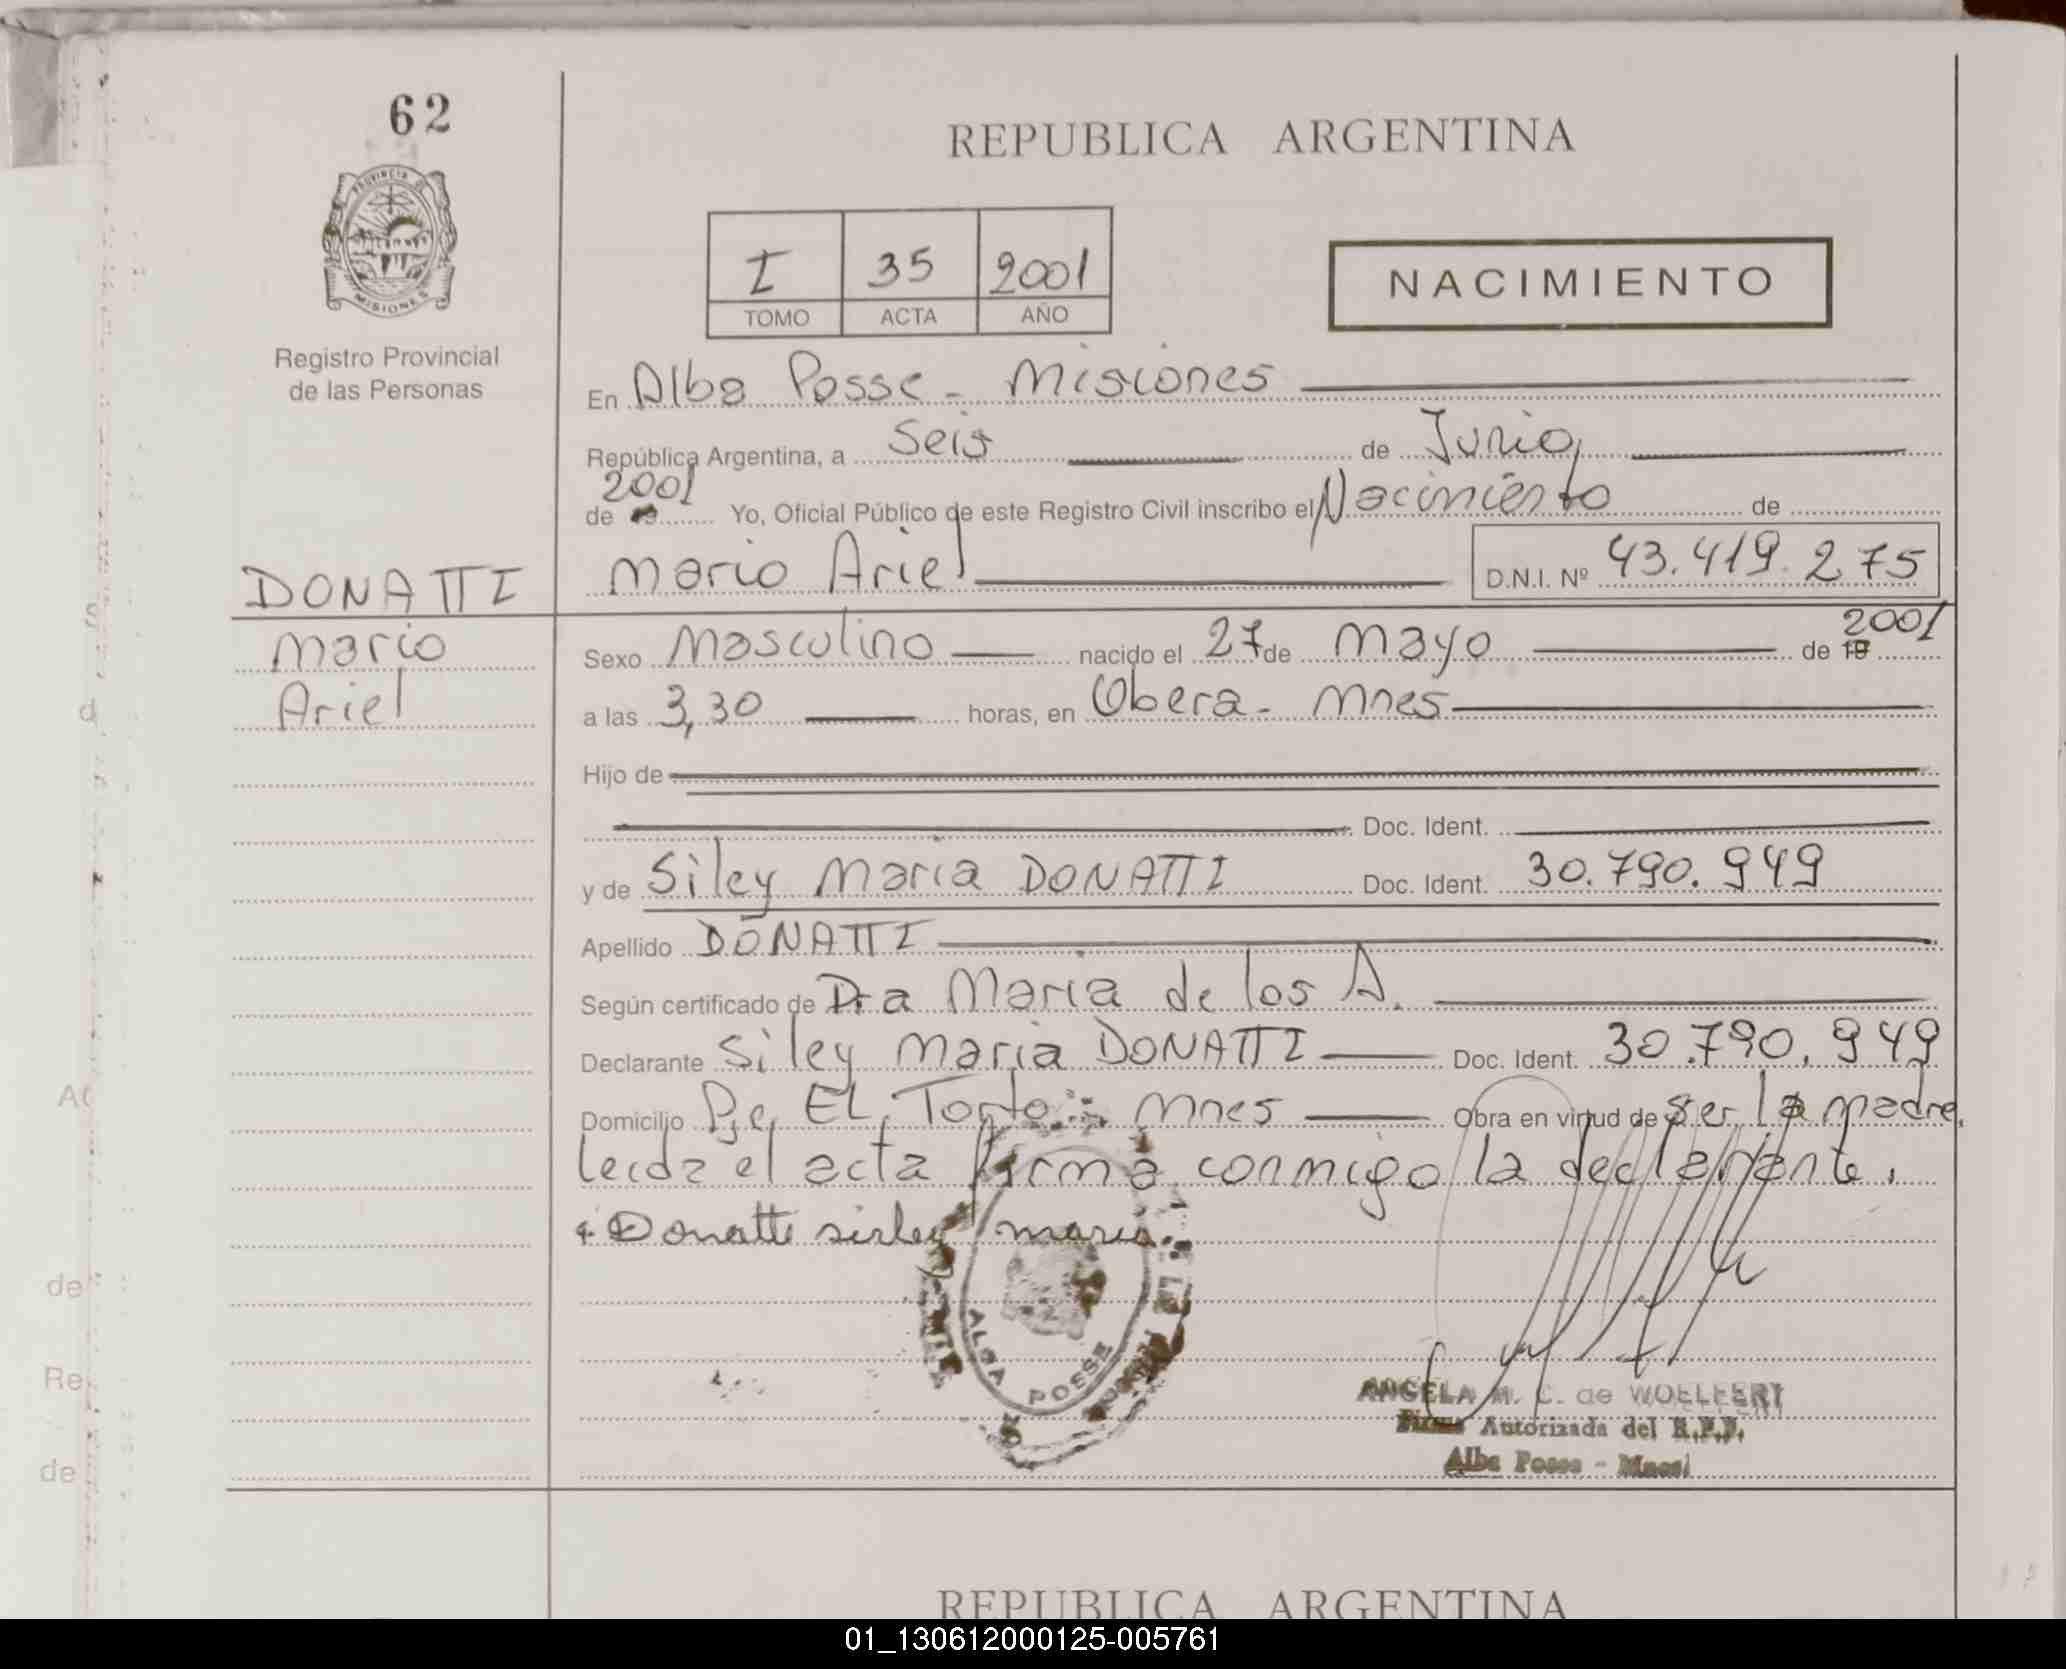 62
REPUBLICA ARGENTINA
PROVINCIA DE
MISIONES
I 35 2001
TOMO ACTA AÑO
NACIMIENTO
Registro Provincial
de las Personas
En Alba Posse - Misiones
República Argentina, a Seis de Junio,
2001
de 19 Yo, Oficial Público de este Registro Civil inscribo el Nacimiento de
DONATTI Mario Ariel D.N.I. Nº 43.419.275
Mario
Ariel
Sexo Masculino nacido el 27 de Mayo de 19 2001
a las 3,30 horas, en Obera - Mnes
Hijo de
Doc. Ident.
y de Siley Maria DONATTI Doc. Ident. 30.790.949
Apellido DONATTI
Según certificado de Dra Maria de los A.
Declarante Siley Maria DONATTI Doc. Ident. 30.790.949
Domicilio Pje EL Torto - Mnes Obra en virtud de ser la madre,
Leida el acta firma conmigo la declarante.
Donatti sirley maria
ALBA POSSE
ANGELA M. C. de WOELFERT
Firma Autorizada del R.P.P.
Alba Posse - Mnes
REPUBLICA ARGENTINA
01_130612000125-005761